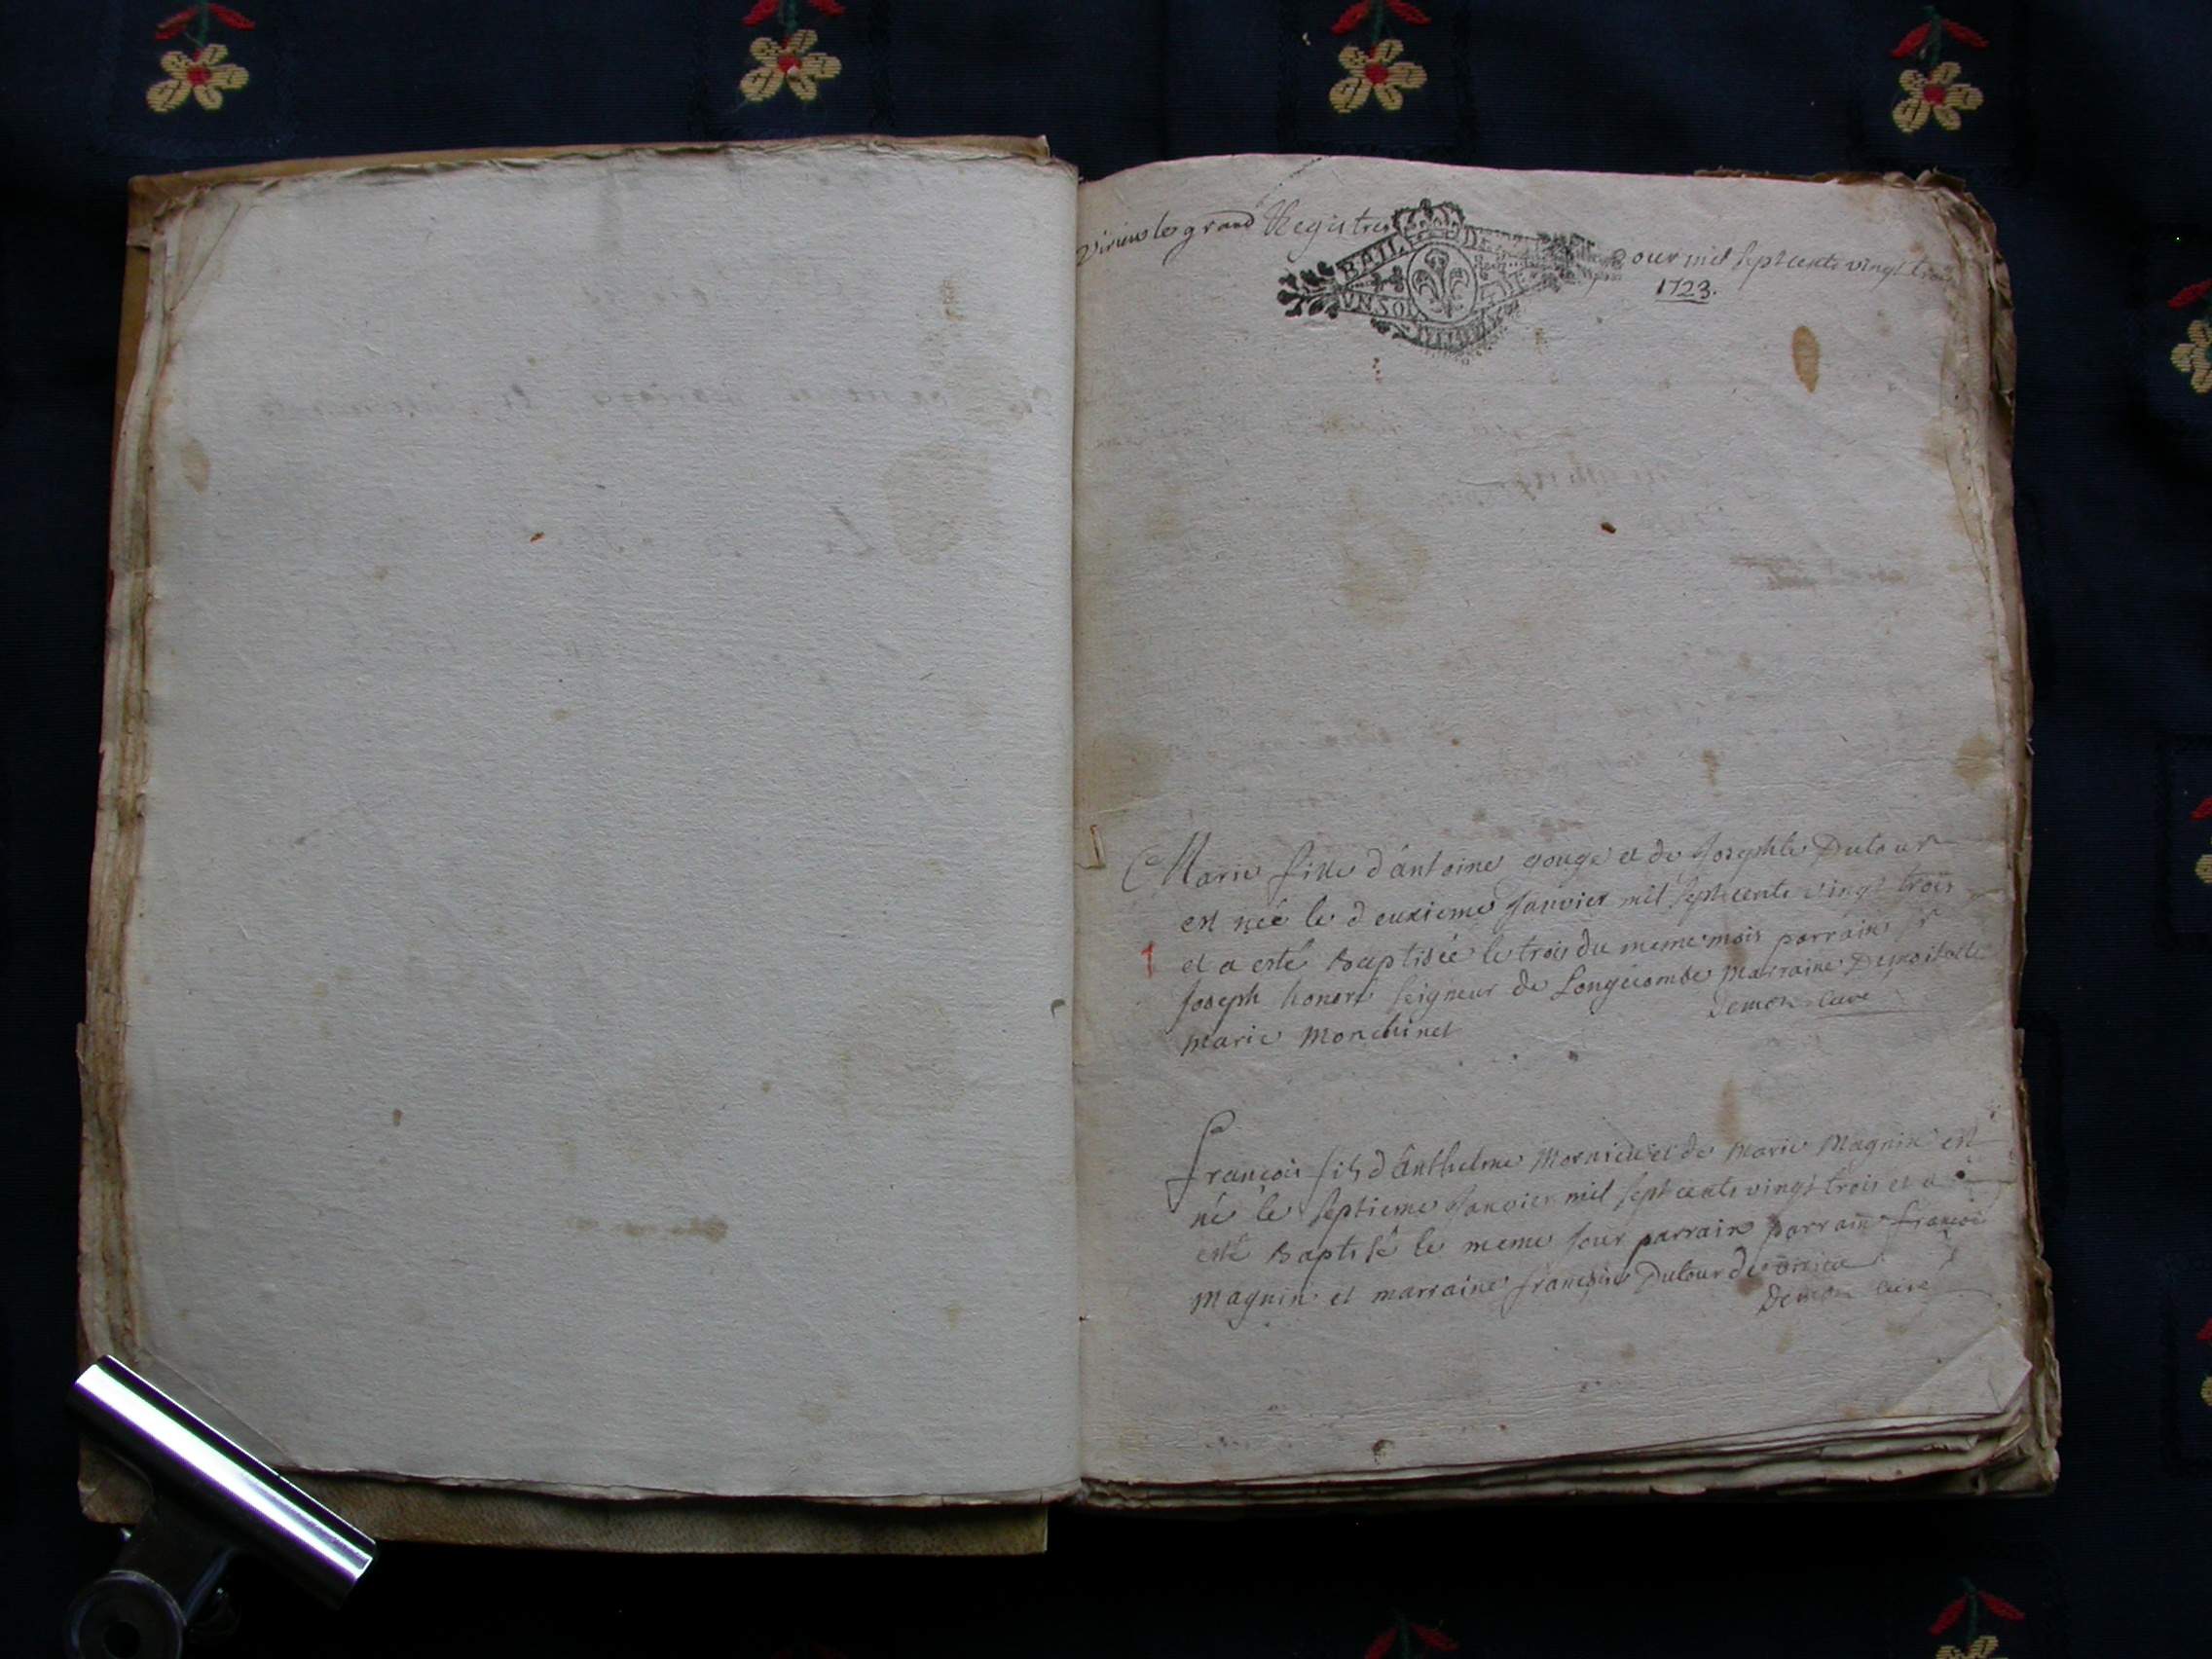 Virieu le grand Registre pour mil sept cents vingt trois
1723.
BAIL DE
UN SOL
Marie fille d'antoine gouge et de Josephte Dutour
est née le deuxieme Janvier mil sept cents vingt trois
1
et a esté Baptisée le trois du meme mois parrain sr
Joseph honoré seigneur de Longecombe marraine Demoiselle
marie monchinet
Demon cure
François fils d'Anthelme Mornieu et de Marie Magnin est
né le septieme Janvier mil sept cents vingt trois et a
esté Baptisé le meme jour parrain parrain françois
Magnin et marraine françoise Dutour de virieu
Demon cure